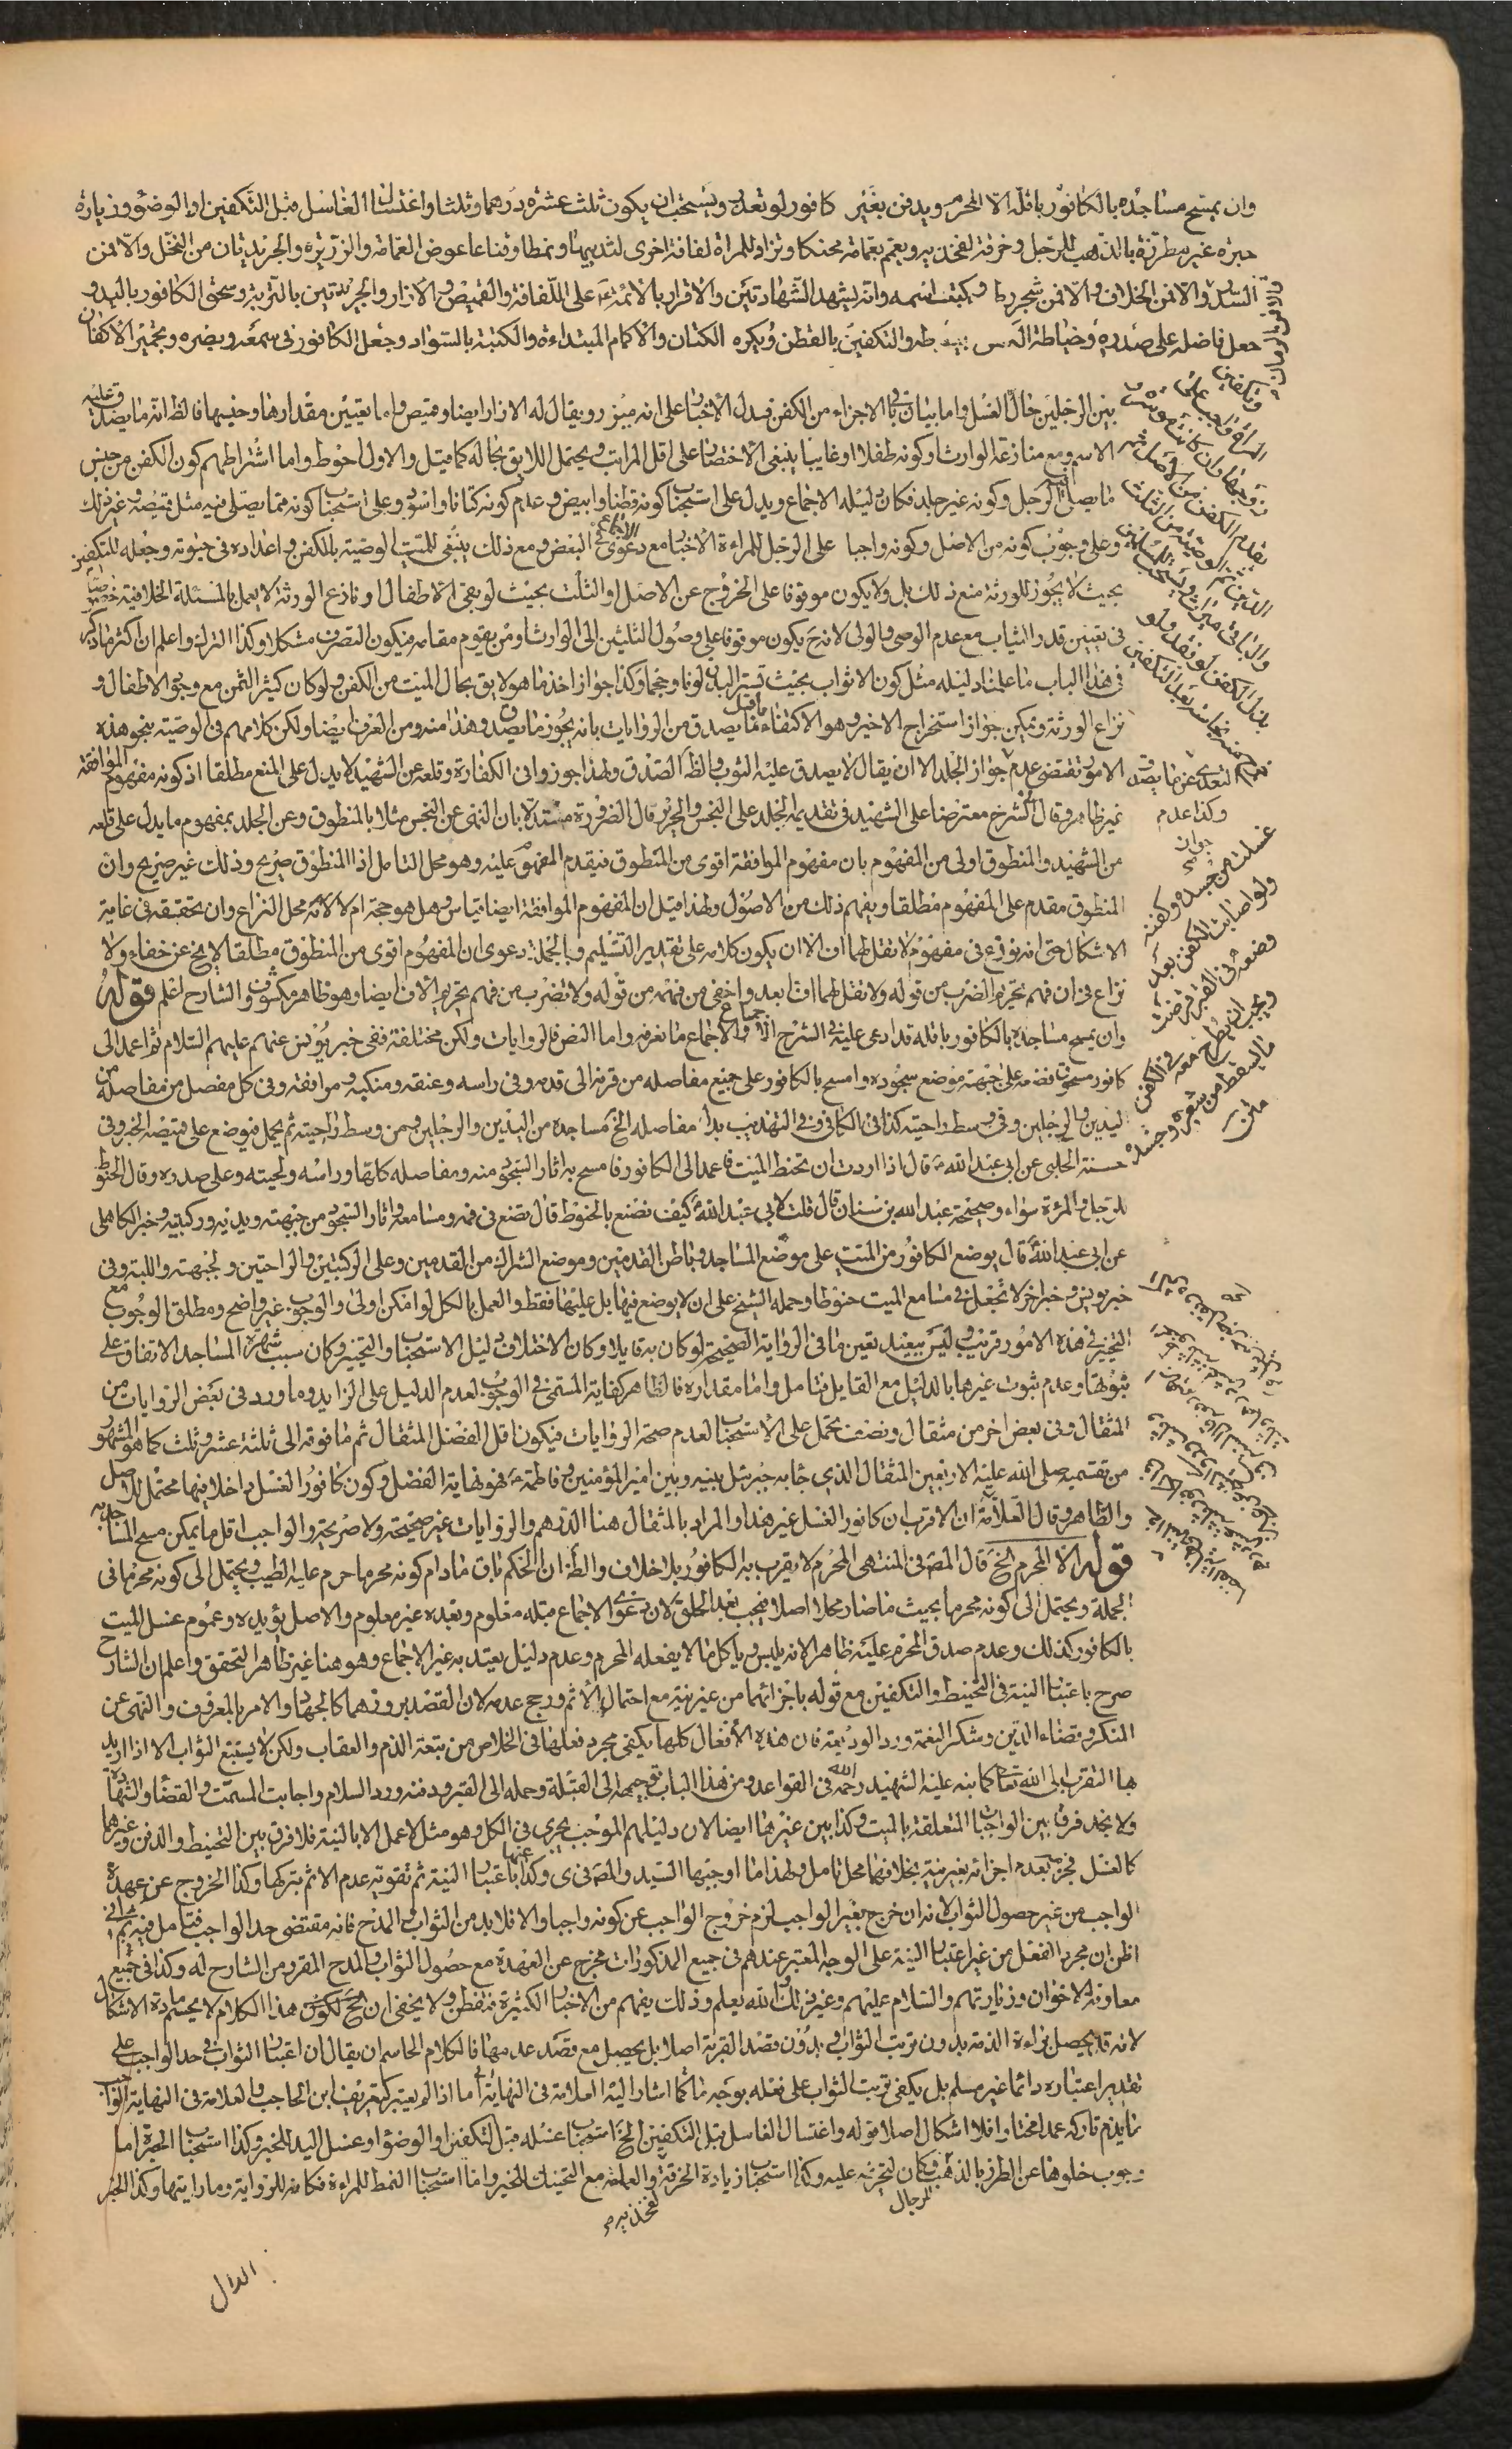 وان يمسح مساجده بالكافور باقله الا المحرم ويدفن بغير كافور لو تعذر ويستحب ان يكون ثلث عشرة درهما وثلثا واغتسال الغاسل قبل التكفين او الوضوء وزيادة
حبرة غير مطرزة بالذهب للرجل وخرقة لفخذيه ويعمم بعمامة محنكا وتزاد للمراة لفافة اخرى لثدييها ونمطا وقناعا عوض العمامة والذريرة والجريدتان من النخل والا فمن
السدر والا فمن الخلاف والا فمن شجر رطب ويكتب اسمه وانه يشهد الشهادتين والاقرار بالائمة على اللفافة والقميص والازار والجريدتين بالتربة وسحق الكافور باليد و
جعل فاضله على صدره وخياطة التكفين بالقطن ويكره الكتان والاكمام المبتداءة والكتبة بالسواد وجعل الكافور في سمعه وبصره وتجمير الاكفان
بين الرجلين حال الغسل واما بيان باقي الاجزاء من الكفن فيدل الاخبار على انه ميزر ويقال له الازار ايضا وقميص واما تعيين مقدارها وجنسها فالظ انه ما يصدق عليه
الاسم ومع منازعة الوارث او كونه طفلا او غايبا ينبغي الاختصار على اقل المراتب ويحتمل اللايق بحاله كما قيل والاول احوط واما اشتراطهم كون الكفن من جنس
ما يصلى الرجل وكونه غير جلد فكان دليله الاجماع ويدل على استحباب كونه قطنا وابيض وعدم كونه كتانا واسود وعلى استحباب كونه مما يصلى فيه مثل قميصه وغير ذلك
وعلى وجوب كونه من الاصل وكونه واجبا على الرجل للمراءة الاخبار مع دعوى الاجماع في البعض ومع ذلك ينبغي للميت الوصية بالكفن واعداده في حيوته وجعله للتكفين
بحيث لا يجوز للورثة منع ذلك بل ولا يكون موقوفا على الخروج عن الاصل او الثلث بحيث لو بقي الاطفال او نازع الورثة لا يعمل بالمسئلة الخلافية خصوصا
في تعيين قدر الثياب مع عدم الوصي والولي لانه ح يكون موقوفا على وصول الثلثين الى الوارث او من يقوم مقامه فيكون التصرف مشكلا وكذا الترك واعلم ان اكثر ما ذكر
في هذا الباب ما علمنا دليله مثل كون الاثواب بحيث تستر البدن لونا وحجما وكذا جواز اخذ ما هو لايق بحال الميت من الكفن ولو كان كثير الثمن مع وجود الاطفال و
نزاع الورثة ويمكن جواز استخراج الاخير وهو الاكتفاء بما يصدق من الروايات بانه يجوز ما يصدق وهذا منه ومن العرف ايضا ولكن كلامهم في الوصية بنحو هذه
الامور تقتضي عدم جواز الجلد الا ان يقال لا يصدق عليه الثوب والظ الصدق ولهذا جوزوا في الكفارة وقلعه عن الشهيد لا يدل على المنع مطلقا اذ كونه مفهوم الموافقة
غير ظاهر وقال الش رح معترضا على الشهيد في تقديم الجلد على النجس والحرير قال الضرورة مستدلا بان النهي عن النجس مثلا بالمنطوق وعن الجلد بمفهوم ما يدل على قلعه
من الشهيد والمنطوق اولى من المفهوم بان مفهوم الموافقة اقوى من المنطوق فيقدم المفهوم عليه وهو محل التامل اذ المنطوق صريح وذلك غير صريح وان
المنطوق مقدم على المفهوم مطلقا ويفهم ذلك من الاصول ولهذا قيل ان المفهوم الموافقة ايضا قياس وهل هو حجة ام لا لانه محل النزاع وان تحقيقه في غاية
الاشكال حتى انه نوزع في مفهوم لا تقل لهما اف الا ان يكون كلامه على تقدير التسليم وبالجملة دعوى ان المفهوم اقوى من المنطوق مطلقا لا يخ عن خفاء ولا
نزاع في ان فهم تحريم الضرب من قوله ولا تقل لهما اف ابعد واخفى من فهمه من قوله ولا تضرب من فهم تحريم الاف ايضا وهو ظاهر مكشوف والشارح اعلم قوله
وان يمسح مساجده بالكافور باقله قد ادعى عليه في الشرح الاجماع والاجماع ما نعرفه واما النص فالروايات ولكن مختلفة ففي خبر يونس عنهم عليهم السلام ثم اعمد الى
كافور مسحوق فضعه على جبهته موضع سجوده وامسح بالكافور على جميع مفاصله من قرنه الى قدمه وفي راسه وعنقه ومنكبيه ومرافقه وفي كل مفصل من مفاصله من
اليدين والرجلين وفي وسط راحتيه كذا في الكافي وفي التهذيب بدل مفاصله الخ مساجده من اليدين والرجلين ومن وسط راحتيه ثم يحمل فيوضع على قميصه الخبر وفي
حسنة الحلبي عن ابي عبد الله ع قال اذا اردت ان تحنط الميت فاعمد الى الكافور فامسح به اثار السجود منه ومفاصله كلها وراسه ولحيته وعلى صدره وقال الحنوط
للرجل والمرئة سواء وصحيحة عبد الله بن سنان قال قلت لابي عبد الله ع كيف نصنع بالحنوط قال تضع في فمه ومسامعه واثار السجود من جبهته ويديه وركبتيه وخبر الكاهلي
عن ابي عبد الله ع قال يوضع الكافور من الميت على موضع المساجد وباطن القدمين وموضع الشراك من القدمين وعلى الركبتين والراحتين والجبهة واللبة وفي
خبر يونس وخبر اخر لا تجعل في مسامع الميت حنوطا وحمله الشيخ على ان لا يوضع فيها بل عليها فقط والعمل بالكل لو امكن اولى والوجوب غير واضح ومطلق الوجوب مع
التخيير في هذه الامور قريب وليس ببعيد تعين ما في الرواية الصحيحة لو كان به قايلا وكان الاختلاف دليل الاستحباب والتخيير وكان سبب شهرة المساجد الاتفاق على
ثبوتها وعدم ثبوت غيرها بالدليل مع القايل فتامل واما مقداره فالظاهر كفاية المسمى في الوجوب لعدم الدليل على الزايد وما ورد في بعض الروايات من
المثقال وفي بعض اخر من مثقال ونصف يحمل على الاستحباب لعدم صحة الروايات فيكون اقل الفضل المثقال ثم ما فوقه الى ثلثة عشر وثلث كما هو المشهور
من تقسيمه صلى الله عليه الاربعين المثقال الذي جاء به جبرئيل بينه وبين امير المؤمنين وفاطمة ع فهو نهاية الفضل وكون كافور الغسل داخلا فيها محتمل للاصل
والظاهر وقال العلامة ان الاقرب ان كافور الغسل غير هذا والمراد بالمثقال هنا الدرهم والروايات غير صحيحة ولا صريحة والواجب اقل ما يمكن مسح المساجد به
قوله الا المحرم الخ قال المص في المنتهى المحرم لا يقرب به الكافور بلا خلاف والظ ان الحكم باق ما دام كونه محرما حرم عليه الطيب ويحتمل الى كونه محرما في
الجملة ويحتمل الى كونه محرما بحيث ما صار محلا اصلا فيجب بعد الحلق لان دعوى الاجماع قبله معلوم وبعده غير معلوم والاصل يؤيده وعموم غسل الميت
بالكافور كذلك وعدم صدق المحرم عليه ظاهر الانه يلبس وياكل ما لا يفعله المحرم وعدم دليل يعتد به غير الاجماع وهو هنا غير ظاهر التحقق واعلم ان الشارح
صرح باعتبار النية في التحنيط والتكفين مع قوله باجزائهما من غير نية مع احتمال الاثم ورجح عدمه لان القصد بروزهما كالجهاد والامر بالمعروف والنهي عن
المنكر وقضاء الدين وشكر النعمة ورد الوديعة فان هذه الافعال كلها يكفي مجرد فعلها في الخلاص من تبعة الذم والعقاب ولكن لا يستتبع الثواب الا اذا اريد
بها التقرب الى الله تعالى كما نبه عليه الشهيد رحمه الله في القواعد ومن هذا الباب توجيهه الى القبلة وحمله الى القبر ودفنه ورد السلام واجابة المسمت والقضاء والشهادة
ولا نجد فرقا بين الواجبات المتعلقة بالميت وكذا بين غيرها ايضا لان دليلهم الموجب يجري في الكل وهو مثل لا عمل الا بالنية فلا فرق بين التحنيط والدفن وغيرهما
كالغسل فجزمه بعدم اجزائه بغير نية بخلافهما محل تامل ولهذا ما اوجبها السيد والمص في ى وكذا باعتبار النية ثم تقويه عدم الاثم بتركها وكذا الخروج عن عهدة
الواجب من غير حصول الثواب لانه ان خرج بغير الواجب لزم خروج الواجب عن كونه واجبا والا فلا بد من الثواب والمدح فانه مقتضى حد الواجب فتامل فيه ثم اني
اظن ان مجرد الفعل من غير اعتبار النية على الوجه المعتبر عندهم في جميع المذكورات مخرج عن العهدة مع حصول الثواب والمدح المقرر من الشارح له وكذا في جميع
معاونة الاخوان وزيارتهم والسلام عليهم وغير ذلك والله يعلم وذلك يفهم من الاخبار الكثيرة فتفطن ولا يخفى ان هذا الكلام لا يحسم مادة الاشكال
لانه قد يحصل براءة الذمة بدون ترتب الثواب وبدون قصد القربة اصلا بل يحصل مع قصد عدمها فالكلام الحاسم ان يقال ان اعتبار الثواب في حد الواجب على
تقدير اعتباره دائما غير مسلم بل يكفي ترتب الثواب على فعله بوجه ما كما اشار اليه العلامة في النهاية اما اذا لم يعتبر كتعريف ابن الحاجب والعلامة في النهاية الواجب
ما يذم تاركه عمدا مختارا فلا اشكال اصلا قوله واغتسال الغاسل قبل التكفين الخ استحباب غسله قبل التكفين او الوضوء او غسل اليد للخبر وكذا استحباب الحبرة اما
وجوب خلوها عن الطرز بالذهب فكان لتحريمه عليه وكذا استحباب زيادة الخرقة والعمامة مع التحنيك للخبر واما استحباب النمط للمراءة فكانه للرواية وما رايتها وكذا الخبر
للرجال
لفخذيه
وكفن
المراة واجب على
زوجها وان كانت موسرة
بقدم الكفن من الاصل ثم
الدين ثم الوصية من الثلث
والباقي ميراث ويستحب للمسلمين
بذل الكفن لو فقد ولو
التعدي عن ما يصدق
وكذا عدم
جواز
غسلت من جسده وكفنه
ولو اصابت الكفن بعد
وضعه في القبر قرضت
ويجب ان يطرح معه في الكفن
ما يسقط من شعره وجسده
متن